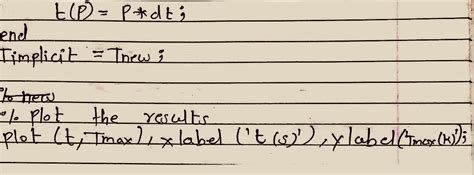 t(P) = P*dt;
end
Timplicit = Tnew;
% plot the results
plot (t, Tmax), xlabel ('t (s)'), ylabel ('Tmax(K)');